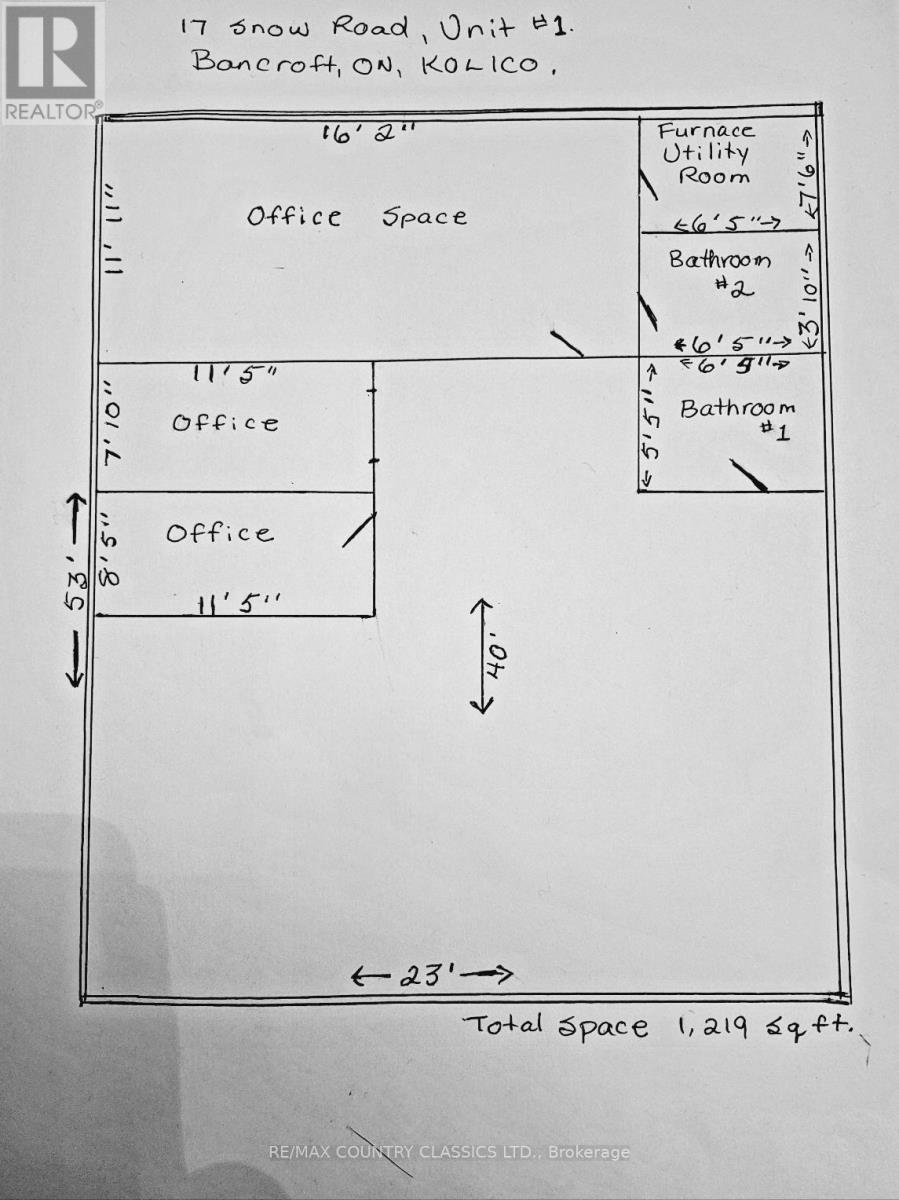 17 Snow Road, Unit #1.
Bancroft, ON, K0L1C0.
REALTOR®
16' 2"
11' 11"
Office Space
Furnace
Utility
Room
7'6"
6' 5"
Bathroom
#2
3' 10"
6' 5"
6' 5"
5' 5"
Bathroom
#1
11' 5"
7' 10"
Office
8' 5"
Office
11' 5"
53'
40'
23'
Total Space 1,219 sq ft.
RE/MAX COUNTRY CLASSICS LTD., Brokerage